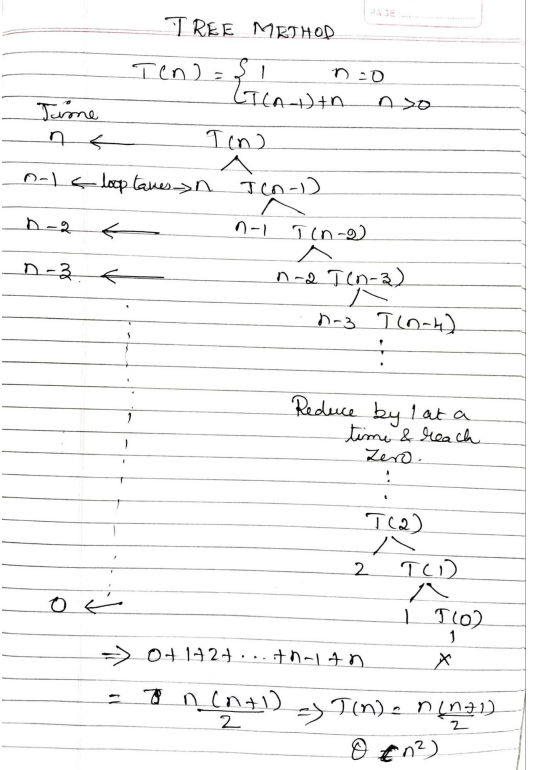 PAGE
TREE METHOD
T(n) = { 1 n = 0
T(n-1)+n n > 0
Time
n ← T(n)
n-1 ← loop taues → n T(n-1)
n-2 ← n-1 T(n-2)
n-3 ← n-2 T(n-3)
n-3 T(n-4)
Reduce by 1 at a
time & reach
Zero.
T(2)
2 T(1)
0 ← 1 T(0)
=> 0+1+2+...+n-1+n ×
= n(n+1)/2 => T(n) = n(n+1)/2
θ(n²)